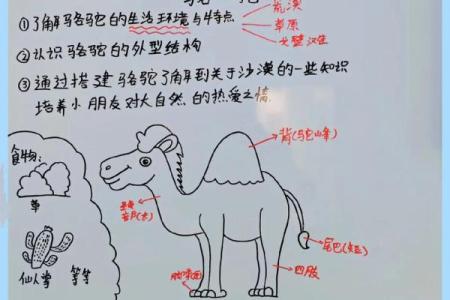 ①了解骆驼的生活环境与特点
荒漠
草原
戈壁
②认识骆驼的外型结构
③通过搭建骆驼了解到关于沙漠的一些知识
培养小朋友对大自然的热爱之情
食物:
草
仙人掌 等等
背(驼峰)
尾巴(短)
四肢